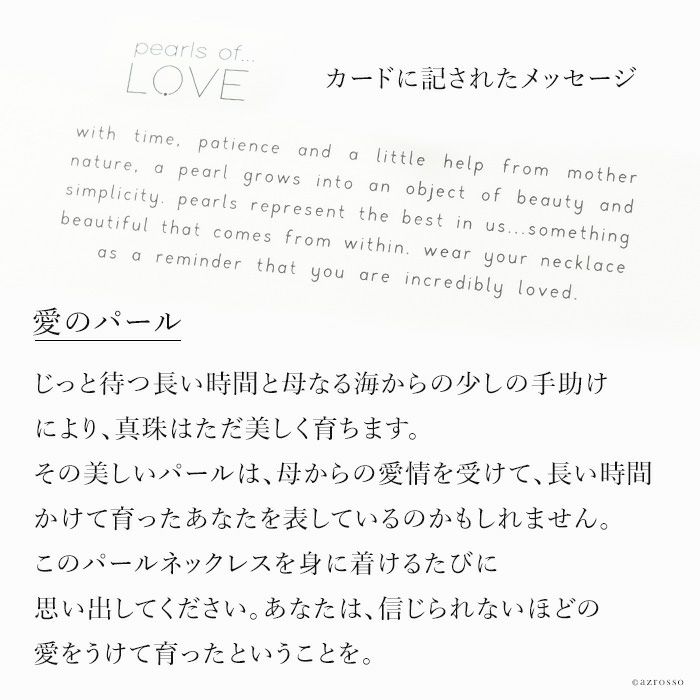 pearls of...
LOVE
カードに記されたメッセージ
with time, patience and a little help from mother
nature, a pearl grows into an object of beauty and
simplicity. pearls represent the best in us...something
beautiful that comes from within. wear your necklace
as a reminder that you are incredibly loved.
愛のパール
じっと待つ長い時間と母なる海からの少しの手助け
により、真珠はただ美しく育ちます。
その美しいパールは、母からの愛情を受けて、長い時間
かけて育ったあなたを表しているのかもしれません。
このパールネックレスを身に着けるたびに
思い出してください。あなたは、信じられないほどの
愛をうけて育ったということを。
©azrosso